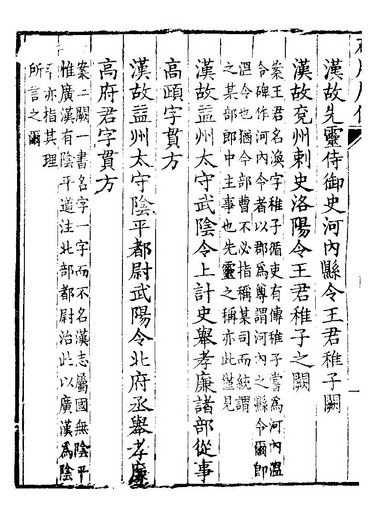 漢故先靈侍御史河內縣令王君稚子闕
漢故兗州刺史洛陽令王君稚子之闕
案王君名渙字稚子循吏有傳稚子嘗為河內溫
令碑作河內令者以郡為尊謂河內之縣令爾即
溫令也猶今部曹不必指稱某司而統謂
之某部郎中主事也先靈之稱亦此僅見
漢故益州太守武陰令上計史舉孝廉諸部從事
高頤字貫方
漢故益州太守陰平都尉武陽令北府丞舉孝廉
高府君字貫方
案二闕一書名字一字而不名漢志屬國無陰平
惟廣漢有陰平道注北部都尉治此以廣漢為陰
平亦指其理
所言之爾